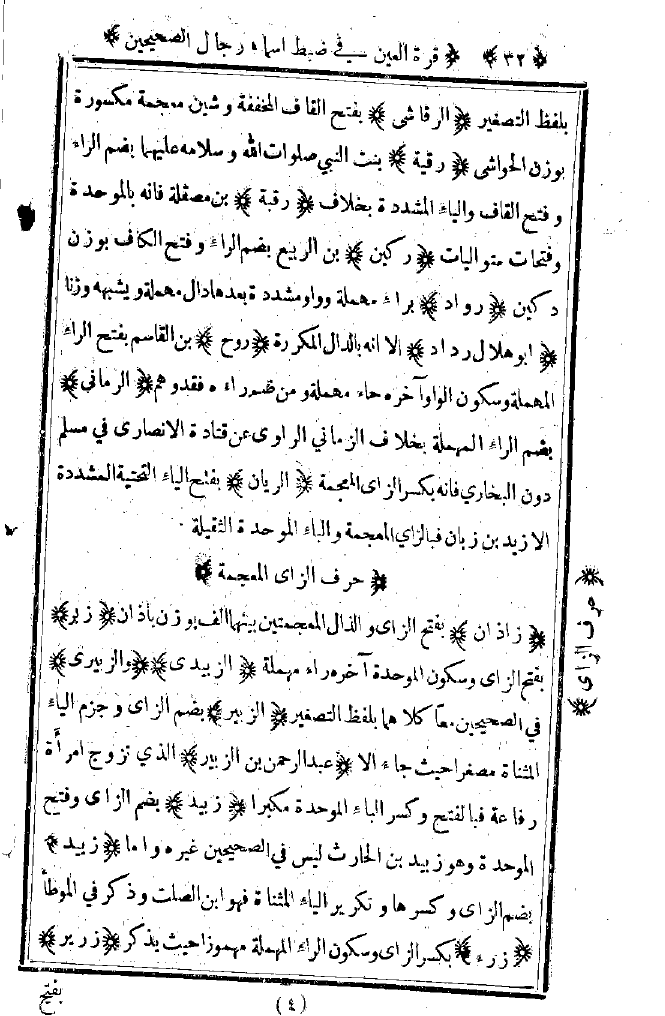 ﴿ ٣٢ ﴾ ﴿ قرة العين في ضبط اسماء رجال الصحيحين ﴾
بلفظ التصغير ﴿ الرقاشى ﴾ بفتح القاف المخففة وشين معجمة مكسورة
بوزن الحواشى ﴿ رقية ﴾ بنت النبي صلوات الله وسلامه عليهما بضم الراء
وفتح القاف والياء المشددة بخلاف ﴿ رقبة ﴾ بن مصقلة فانه بالموحدة
وفتحات متواليات ﴿ ركين ﴾ بن الربيع بضم الراء وفتح الكاف بوزن
دكين ﴿ رواد ﴾ براء مهملة وواو مشددة بعدها دال مهملة ويشبهه وزنا
﴿ ابو هلال رداد ﴾ الا انه بالدال المكررة ﴿ روح ﴾ بن القاسم بفتح الراء
المهملة وسكون الواو آخره حاء مهملة ومن ضم راءه فقد وهم ﴿ الرماني ﴾
بضم الراء المهملة بخلاف الزماني الراوى عن قتادة الانصارى في مسلم
دون البخاري فانه بكسر الزاى المعجمة ﴿ الريان ﴾ بفتح الياء التحتية المشددة
الا زيد بن زبان فبالزاي المعجمة والباء الموحدة الثقيلة
﴿ حرف الزاى المعجمة ﴾
﴿ حرف الزاى ﴾
﴿ زاذان ﴾ بفتح الزاى والذال المعجمتين بينهما الف بوزن باذان ﴿ زبر ﴾
بفتح الزاى وسكون الموحدة آخره راء مهملة ﴿ الزبيدى ﴾ ﴿ والزبيرى ﴾
في الصحيحين معا كلاهما بلفظ التصغير ﴿ الزبير ﴾ بضم الزاى وجزم الياء
المثناة مصغرا حيث جاء الا ﴿ عبدالرحمن بن الزبير ﴾ الذي تزوج امرأة
رفاعة فبالفتح وكسر الباء الموحدة مكبرا ﴿ زبيد ﴾ بضم الزاى وفتح
الموحدة وهو زبيد بن الحارث ليس في الصحيحين غيره واما ﴿ زييد ﴾
بضم الزاى وكسرها وتكرير الياء المثناة فهو ابن الصلت وذكر في الموطأ
﴿ زرء ﴾ بكسر الزاى وسكون الراء المهملة مهموزا حيث يذكر ﴿ زرير ﴾
(٤)
بفتح